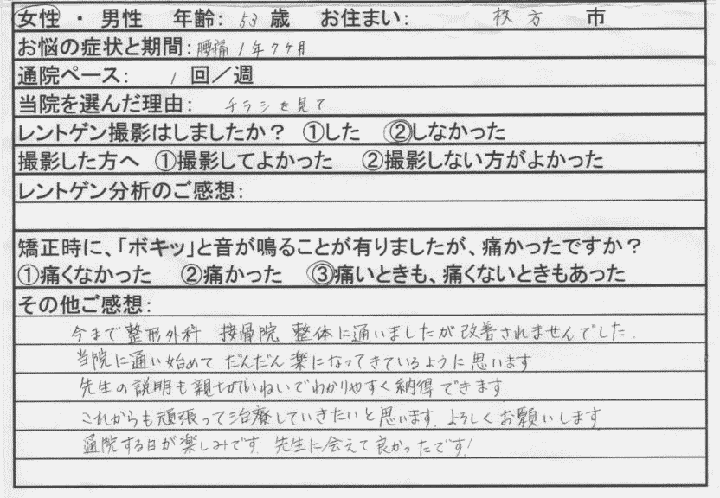 女性・男性 年齢: 53 歳 お住まい: 枚方 市
お悩の症状と期間: 腰痛 1年7ヶ月
通院ペース: 1 回／週
当院を選んだ理由: チラシを見て
レントゲン撮影はしましたか？ ①した ②しなかった
撮影した方へ ①撮影してよかった ②撮影しない方がよかった
レントゲン分析のご感想:
矯正時に、「ボキッ」と音が鳴ることが有りましたが、痛かったですか？
①痛くなかった ②痛かった ③痛いときも、痛くないときもあった
その他ご感想:
今まで整形外科 接骨院 整体に通いましたが改善されませんでした.
当院に通い始めて だんだん楽になってきているように思います
先生の説明も親切ていねいでわかりやすく納得できます
これからも頑張って治療していきたいと思います. よろしくお願いします
通院する日が楽しみです. 先生に会えて良かったです!